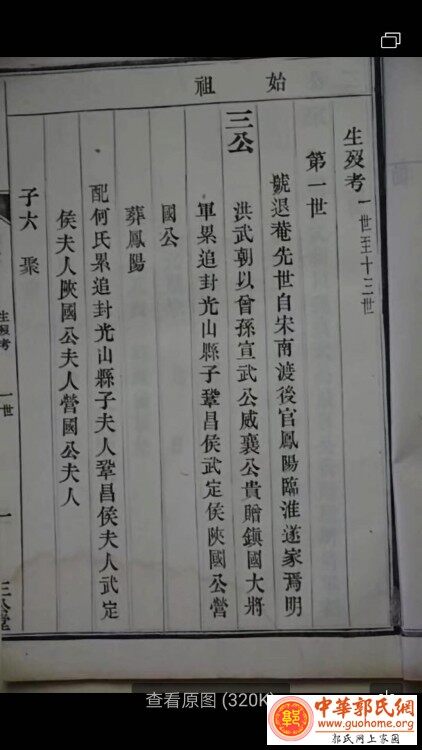 始祖
生歿考 一世至十三世
第一世
三公
號退菴先世自宋南渡後官鳳陽臨淮遂家焉明
洪武朝以曾孫宣武公威襄公貴贈鎮國大將
軍累追封光山縣子鞏昌侯武定侯陝國公營
國公
葬鳳陽
配何氏累追封光山縣子夫人鞏昌侯夫人武定
侯夫人陝國公夫人營國公夫人
子六 聚
生歿考 一世
一
查看原图 (320K)
中華郭氏網
www.guohome.org
郭氏网上家园